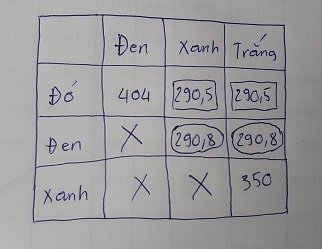 Đen Xanh Trắng
Đỏ 404 290,5 290,5
Đen X 290,8 290,8
Xanh X X 350